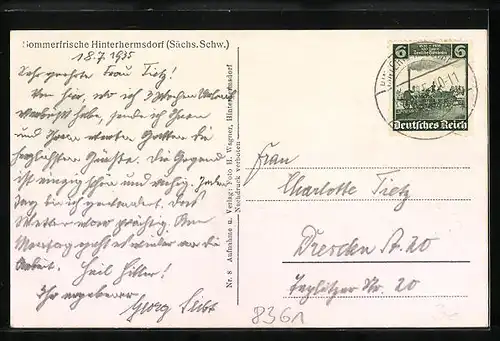 Sommerfrische Hinterhermsdorf (Sächs. Schw.)
18.7.1935
Sehr geehrte Frau Tietz!
Von hier, wo ich 3 Wochen Urlaub
verlebt habe, sende ich Ihnen
und Ihrem werten Gatten die
herzlichsten Grüße. Die Gegend
ist einzig schön und ruhig. Jeden
Tag bin ich gewandert. Das
Wetter war prächtig. Am
Montag geht es wieder an die
Arbeit. Heil Hitler!
Ihr ergebener
Georg
Nr. 8 Aufnahme u. Verlag: Foto H. Wagner, Hinterhermsdorf
Nachdruck verboten
6 6
Deutsches Reich
Frau
Charlotte Tietz
Dresden A. 20
Teplitzer Nr. 20
8361